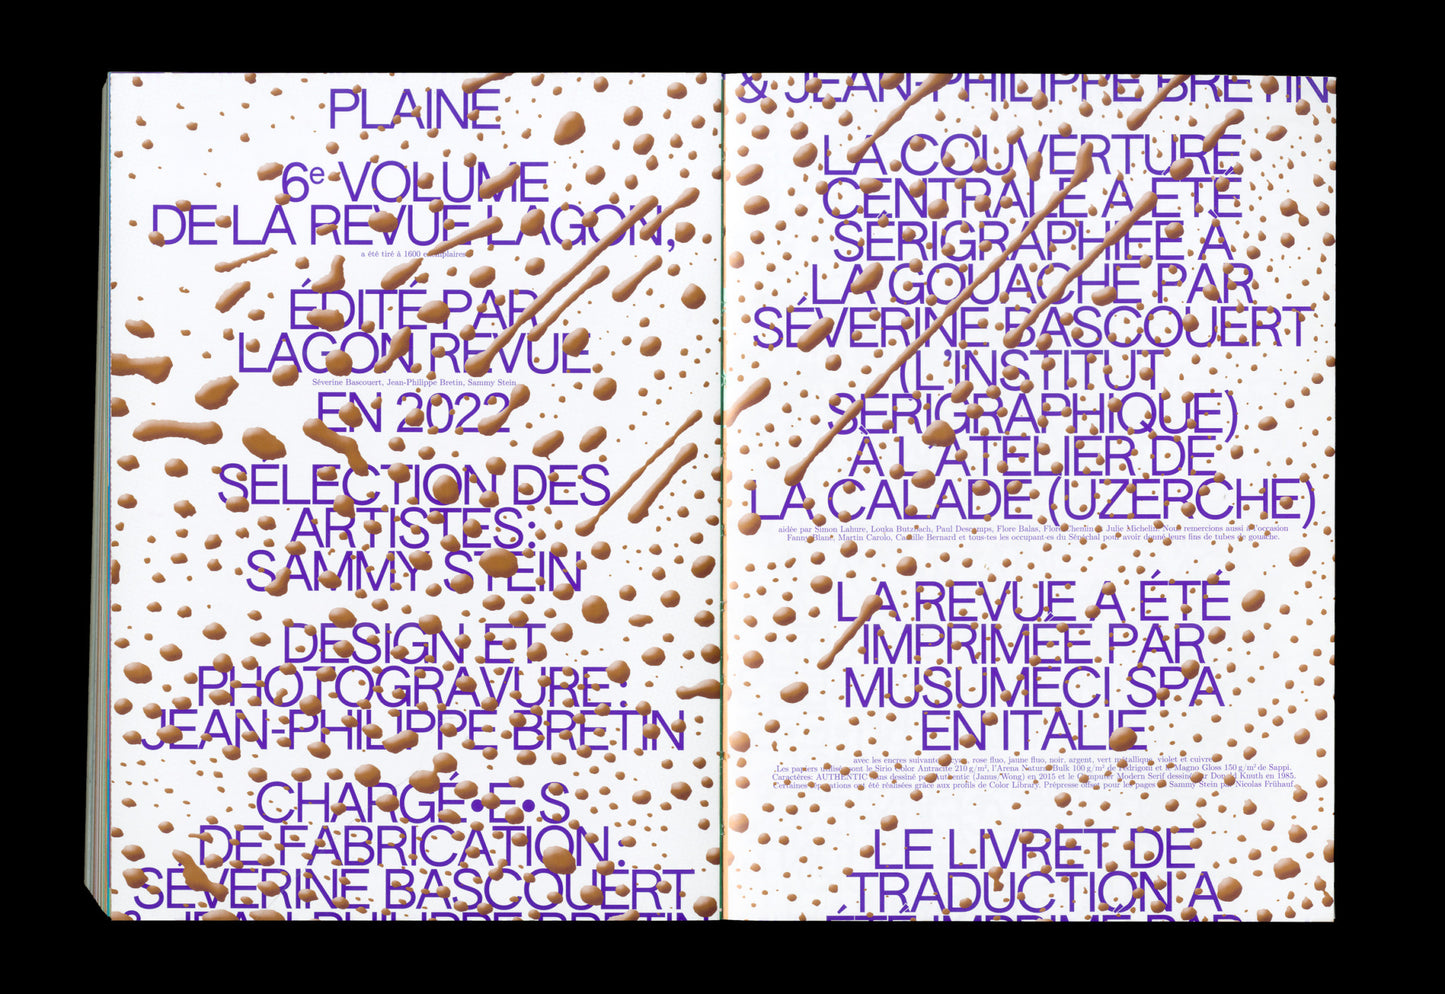 PLAINE
6e VOLUME
DE LA REVUE LAGON,
a été tiré à 1600 exemplaires
ÉDITÉ PAR
LAGON REVUE
Séverine Bascouert, Jean-Philippe Bretin, Sammy Stein
EN 2022
SÉLECTION DES
ARTISTES:
SAMMY STEIN
DESIGN ET
PHOTOGRAVURE:
JEAN-PHILIPPE BRETIN
CHARGÉ•E•S
DE FABRICATION:
SÉVERINE BASCOUERT
& JEAN-PHILIPPE BRETIN
& JEAN-PHILIPPE BRETIN
LA COUVERTURE
CENTRALE A ÉTÉ
SÉRIGRAPHIÉE À
LA GOUACHE PAR
SÉVERINE BASCOUERT
(L'INSTITUT
SÉRIGRAPHIQUE)
À L'ATELIER DE
LA CALADE (UZERCHE)
aidée par Simon Lahure, Louka Butzbach, Paul Descamps, Flore Balas, Flore Chemin & Julie Michelin. Nous remercions aussi à l'occasion
Fanny Blanc, Martin Carolo, Camille Bernard et tous·tes les occupant·es du Sénéchal pour avoir donné leurs fins de tubes de gouache.
LA REVUE A ÉTÉ
IMPRIMÉE PAR
MUSUMECI SPA
EN ITALIE
avec les encres suivantes: cyan, rose fluo, jaune fluo, noir, argent, vert métallique, violet et cuivre.
Les papiers utilisés sont le Sirio Color Antracite 210 g/m², l'Arena Natural Bulk 100 g/m² de Fedrigoni et le Magno Gloss 150 g/m² de Sappi.
Caractères: AUTHENTIC Sans dessiné par Authentic (Janus/Wong) en 2015 et le Computer Modern Serif dessiné par Donald Knuth en 1985.
Certaines séparations ont été réalisées grâce aux profils de Color Library. Prépresse offset pour les pages de Sammy Stein par Nicolas Frühauf.
LE LIVRET DE
TRADUCTION A
ÉTÉ IMPRIMÉ PAR